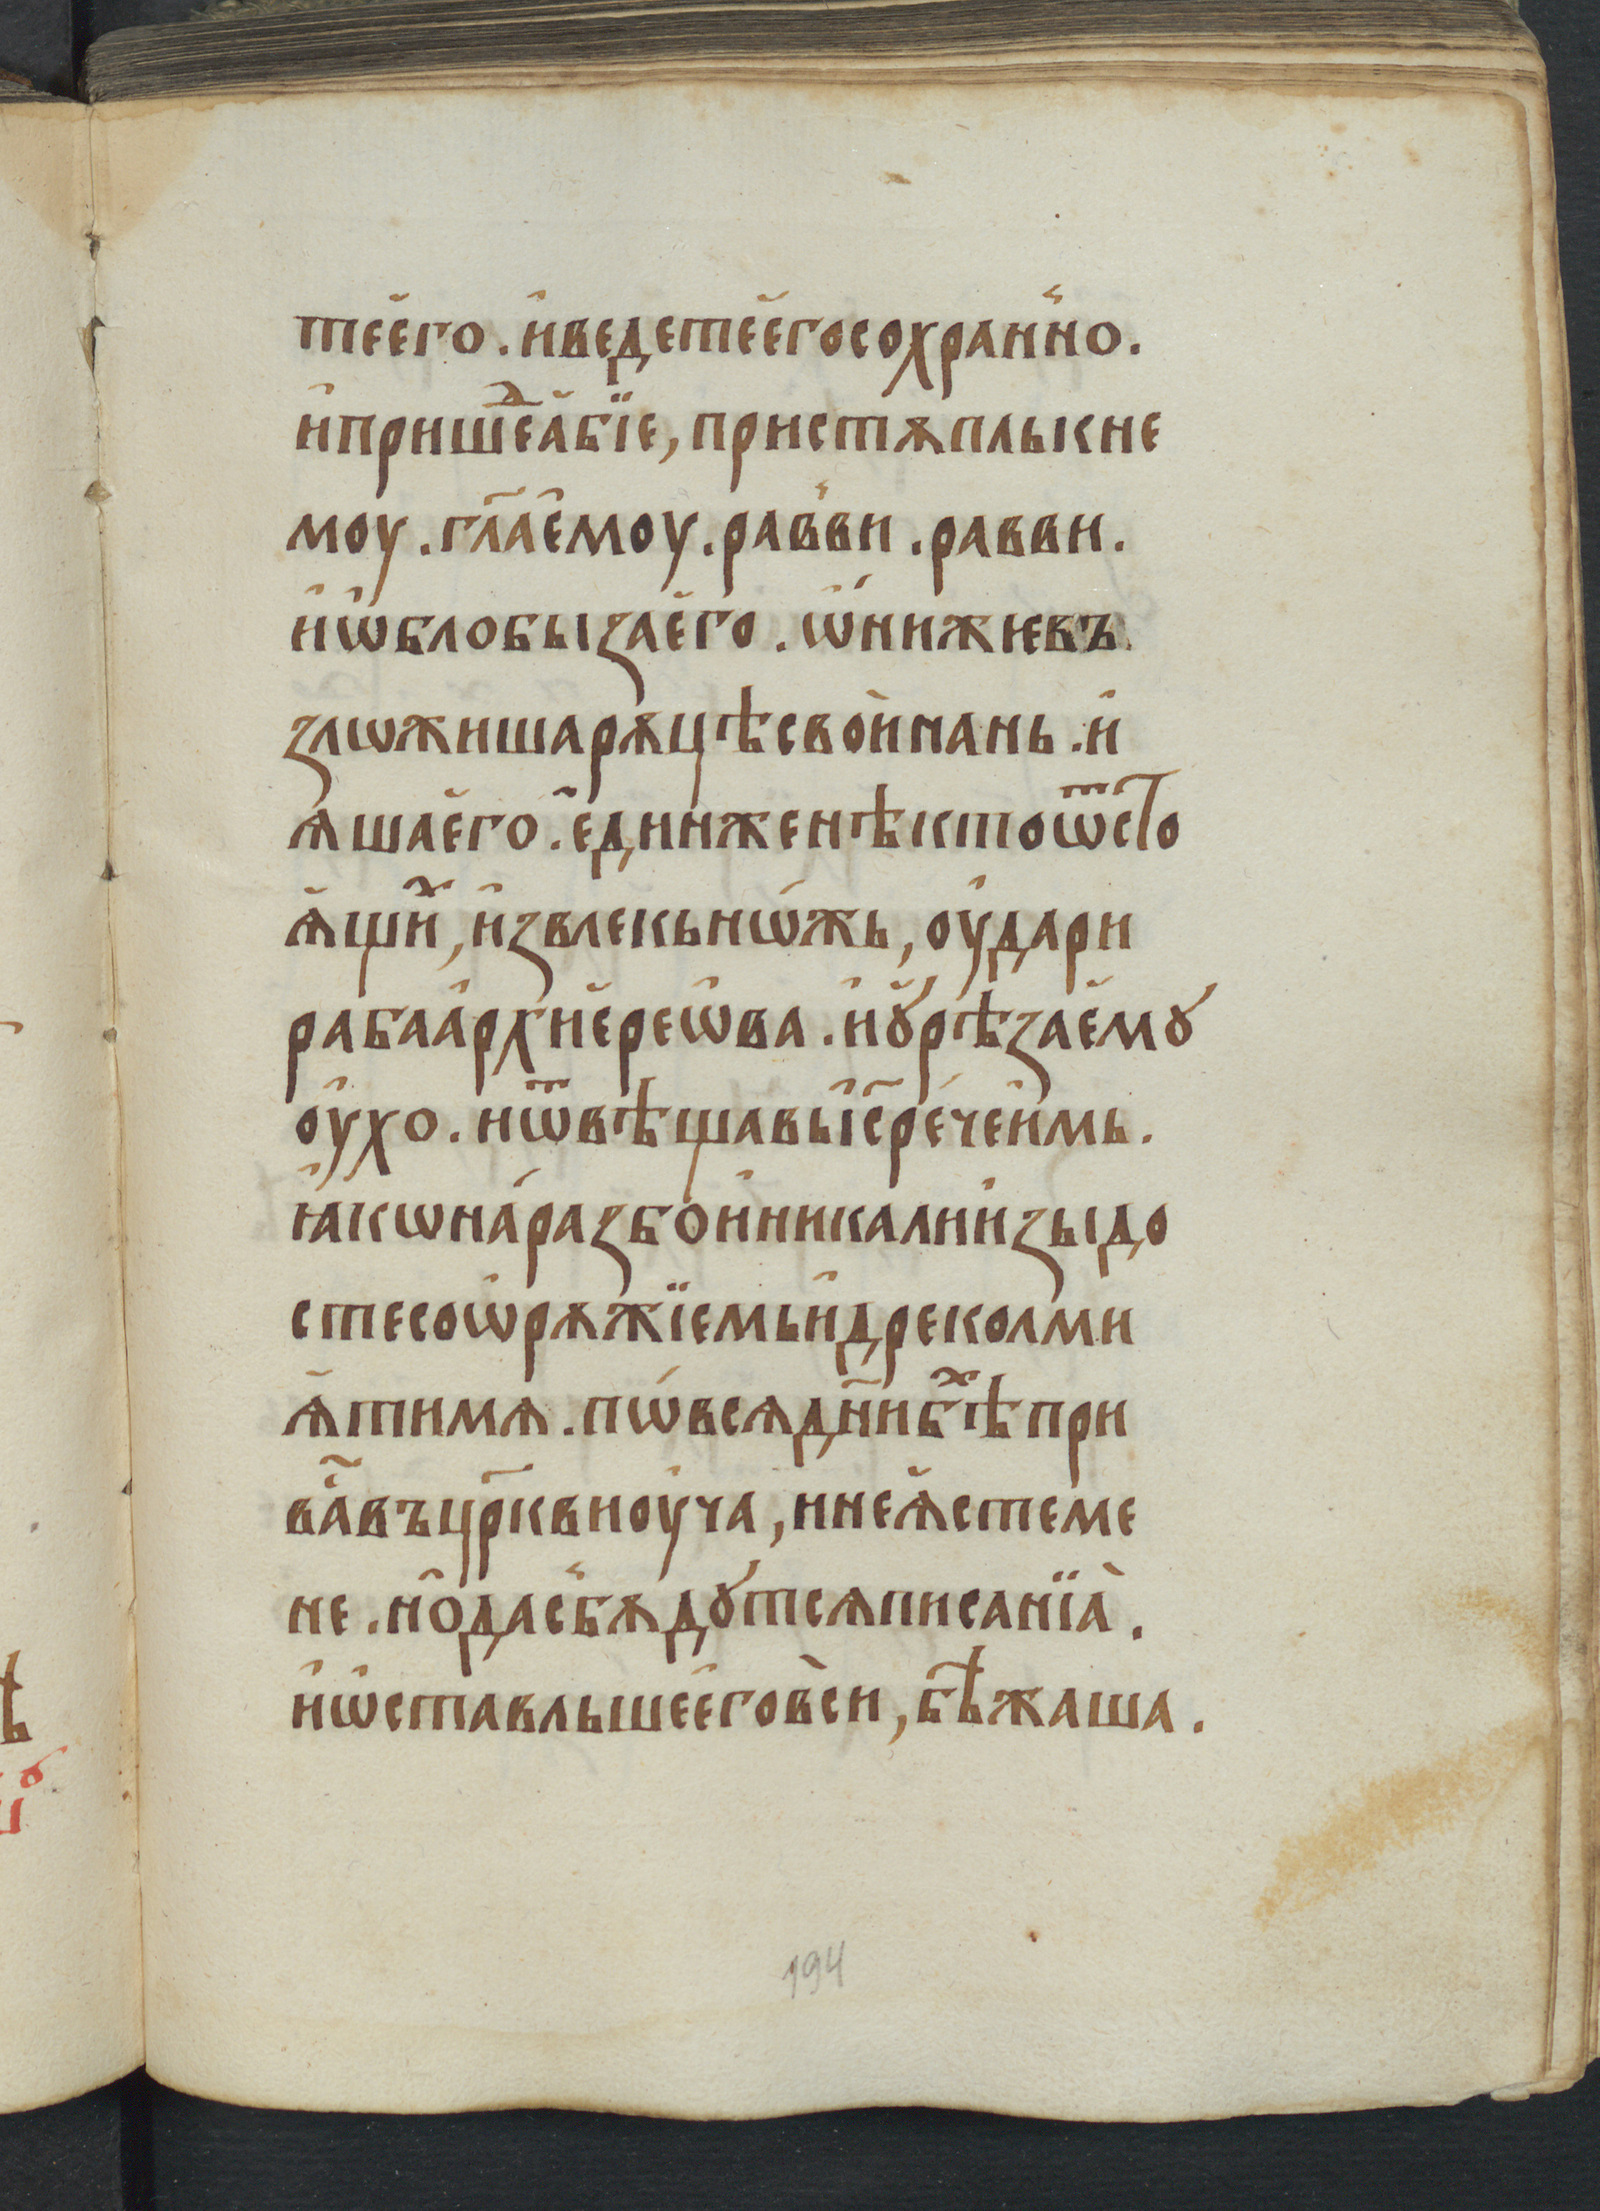 тее҆го . и҆ведетее҆госохран́но .
и҆пришеⷣа҆бїе, пристѫплькне
моу . гл҃ае҆моу . рав́ви . равви .
и҆ѡ҆блобызае҆го . ѡ҆нижневъ
злѡжишарѫцѣсвоѝнань . и҆
ѧшае҆го . е҆динженѣктоѿсто
ѧ҆щиⷯ, и҆звлекьнѡ́жь, оу҆дари
рабаа҆рхїе҆рео҆ва . и҆ꙋрѣзае҆мꙋ
оу҆хо . иѿвѣщавьі҆с҃рѐчеи҆мь .
ꙗ҆кѡна́разбои҆никалии҆зыдо
стесоѡ҆рѫжїемьи҆дреколми
ѧ҆тимѧ . пѡ́всѧдн҃ибⷯѣпри
ва҃въцр҃квиоу҆ча, инеѧ҆стеме
не . но҆дасбѫдꙋтсѧписанїа̀ .
и҆ѡ҆ставльшеего҆вѐси, бѣжаша .
194